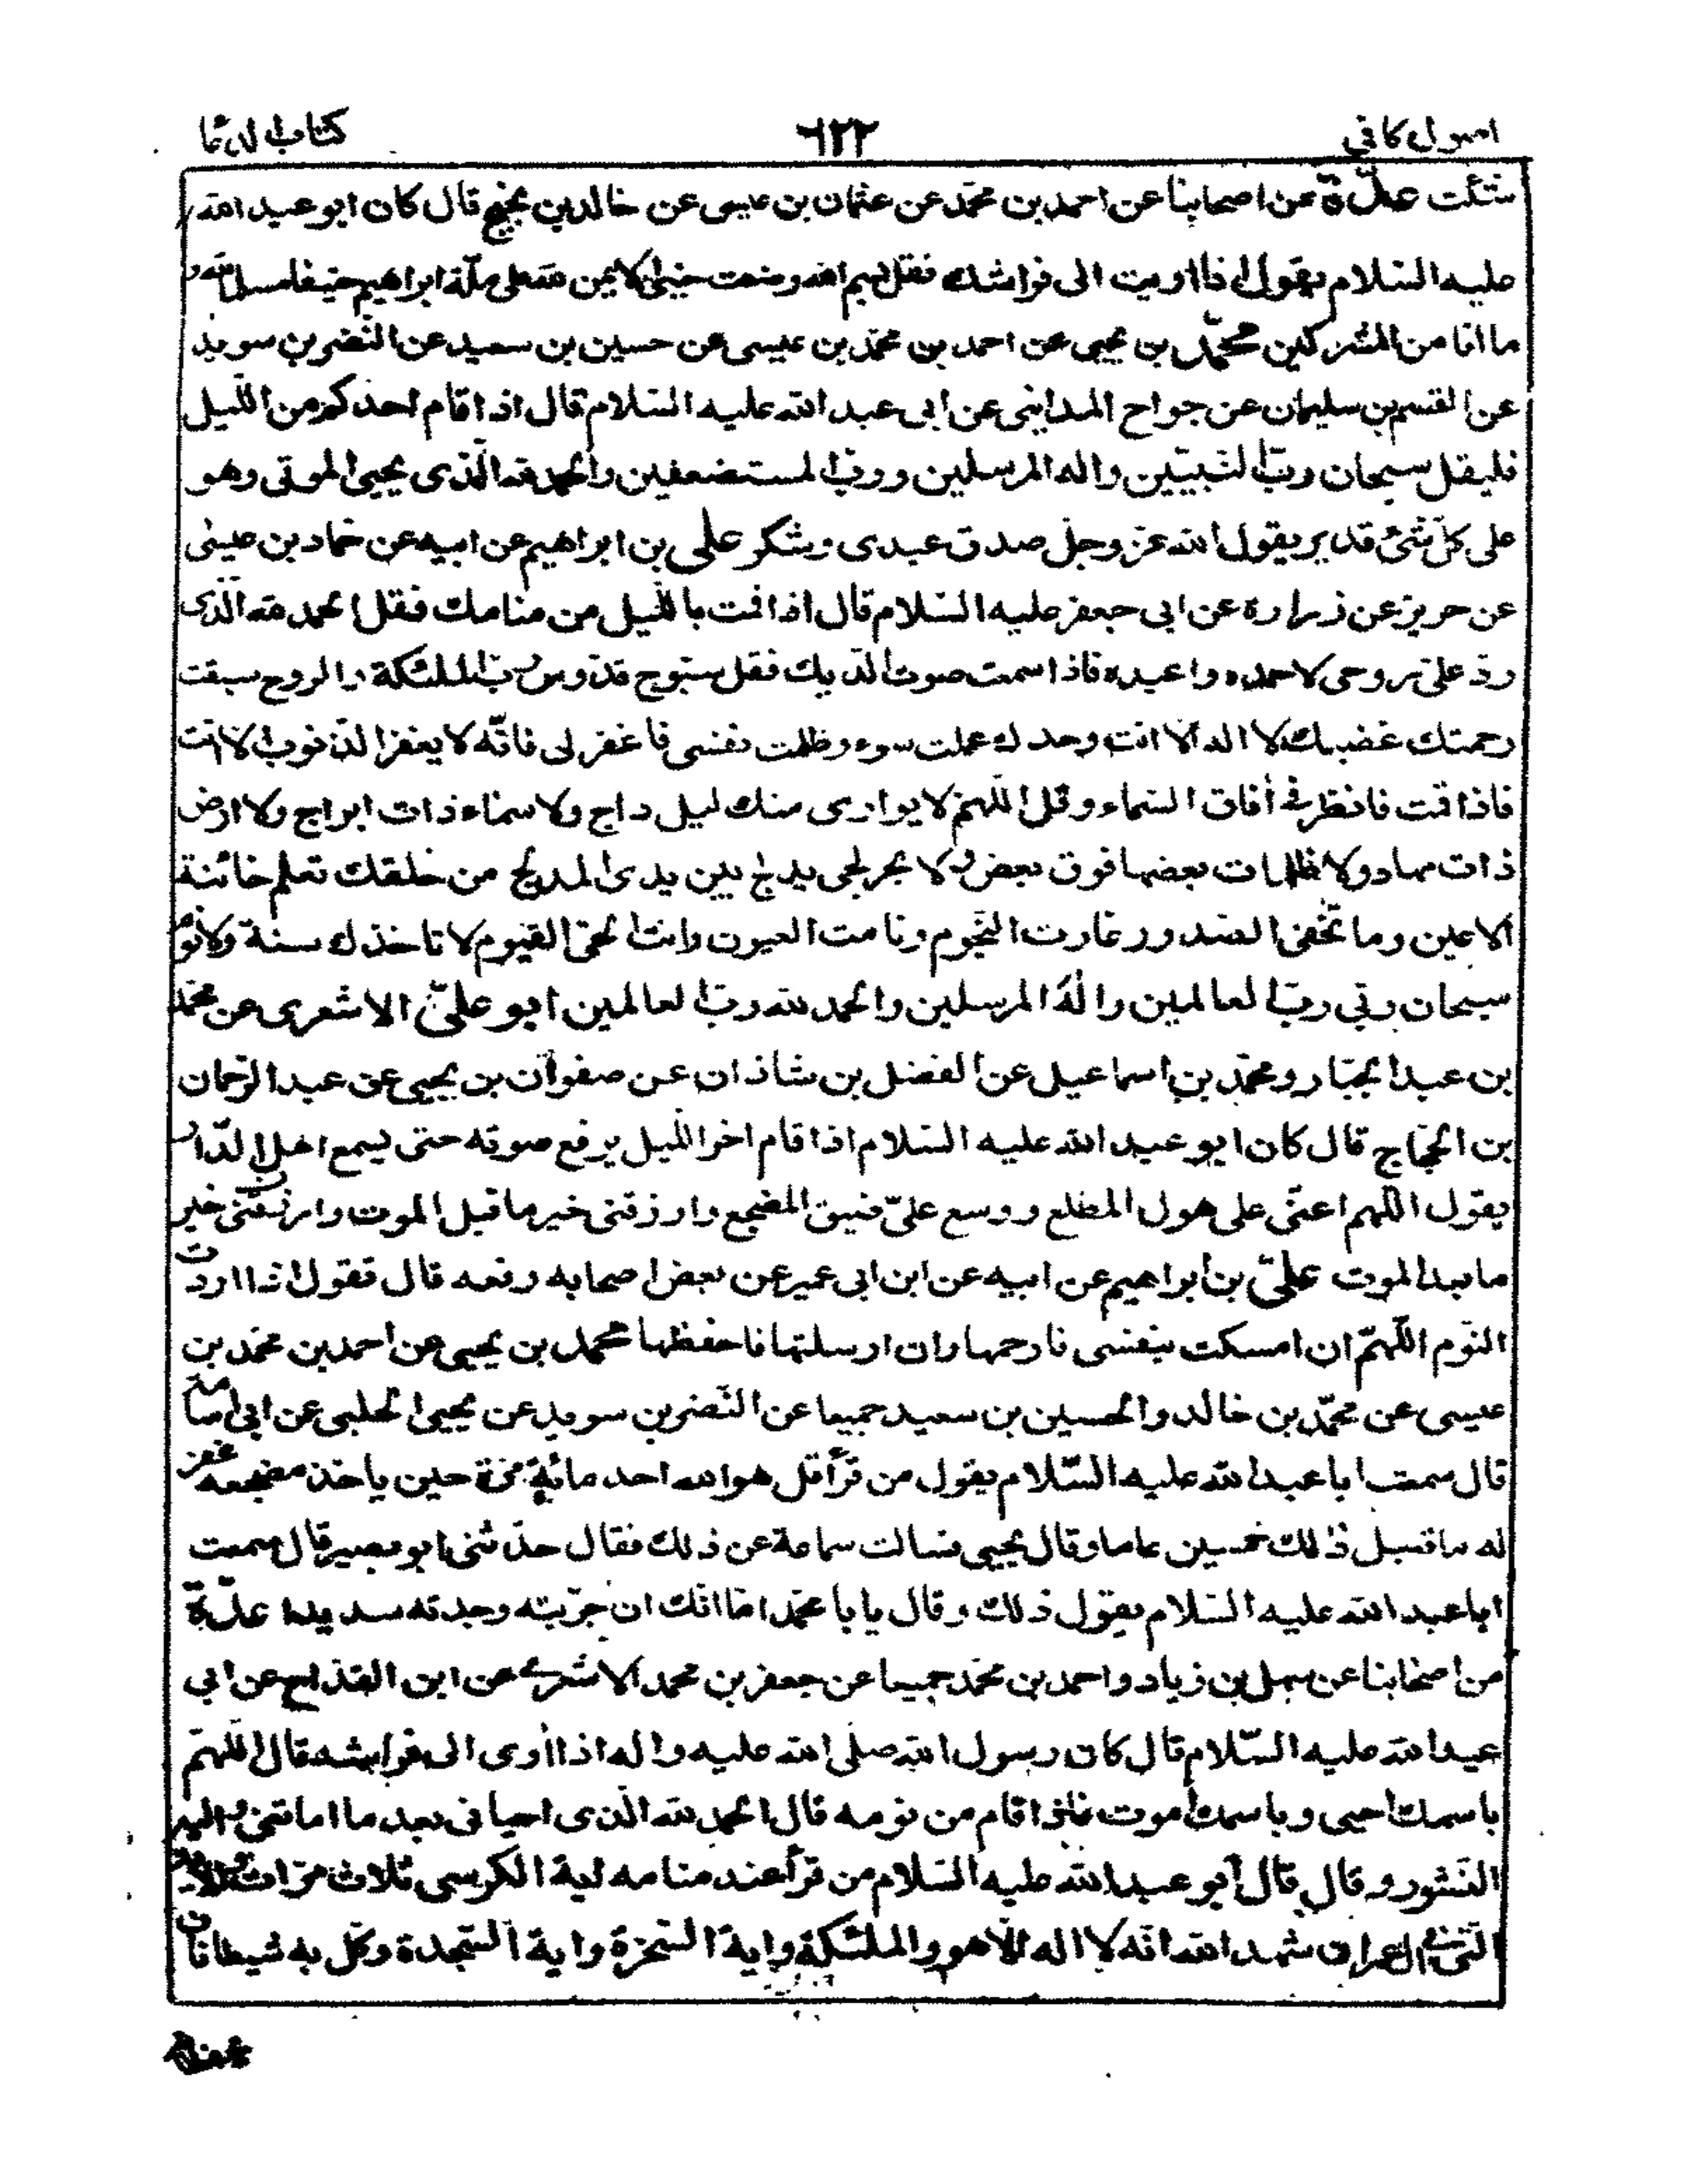 اصول كافي ٦٢٢ كتاب الدعا
شئت عدّة من اصحابنا عن احمد بن محمّد عن عثمان بن عيسى عن خالد بن نجيح قال كان ابو عبد الله
عليه السّلام يقول اذا اويت الى فراشك فقل بسم الله وضعت جنبى الايمن لله على ملّة ابراهيم حنيفا مسلما لله و
ما انا من المشركين محمّد بن يحيى عن احمد بن محمّد بن عيسى عن حسين بن سعيد عن النّضر بن سويد
عن القسم بن سليمان عن جراح المداينى عن ابى عبد الله عليه السّلام قال اذا قام احدكم من اللّيل
فليقل سبحان ربّ النّبيّين واله المرسلين وربّ المستضعفين والحمد لله الّذى يحيى الموتى وهو
على كلّ شئ قدير يقول الله عزّ وجلّ صدق عبدى وشكر على بن ابراهيم عن ابيه عن حمّاد بن عيسى
عن حريز عن زرارة عن ابى جعفر عليه السّلام قال اذا قمت باللّيل من منامك فقل الحمد لله الّذى
ردّ علىّ روحى لاحمده واعبده فاذا سمعت صوت الدّيك فقل سبّوح قدّوس ربّ الملئكة والروح سبقت
رحمتك غضبك لا اله الا انت وحدك عملت سوء وظلمت نفسى فاغفر لى فانّه لا يغفر الذّنوب الا انت
فاذا قمت فانظر فى أفاق السّماء وقل اللّهمّ لا يوارى منك ليل داج ولا سماء ذات ابراج ولا ارض
ذات مهاد ولا ظلمات بعضها فوق بعض ولا بحر لجى يدلج بين يدى المدلج من خلقك تعلم خائنة
الاعين وما تخفى الصّدور غارت النّجوم ونامت العيون وانت الحىّ القيّوم لا تاخذك سنة ولا نوم
سبحان ربّى ربّ العالمين واله المرسلين والحمد لله ربّ العالمين ابو علىّ الاشعرى عن محمّد
بن عبد الجبّار ومحمّد بن اسماعيل عن الفضل بن شاذان عن صفوان بن يحيى عن عبد الرّحمان
بن الحجّاج قال كان ابو عبد الله عليه السّلام اذا قام اخر اللّيل يرفع صوته حتى يسمع اهل الدّار
يقول اللّهم اعنّى على هول المطلع ووسع علىّ ضيق المضجع وارزقنى خير ما قبل الموت وارزقنى خير
ما بعد الموت علىّ بن ابراهيم عن ابيه عن ابن ابى عمير عن بعض اصحابه رفعه قال تقول اذا اردت
النّوم اللّهمّ ان امسكت بنفسى فارحمها وان ارسلتها فاحفظها محمد بن يحيى عن احمد بن محمّد بن
عيسى عن محمّد بن خالد والحسين بن سعيد جميعا عن النّضر بن سويد عن يحيى الحلبى عن ابى اسامة
قال سمعت ابا عبد الله عليه السّلام يقول من قرأ قل هو الله احد مائة مرّة حين ياخذ مضجعه غفر
له ما قبل ذلك خمسين عاما وقال يحيى فسالت سماعة عن ذلك فقال حدّثنى ابو بصير قال سمعت
ابا عبد الله عليه السّلام يقول ذلك وقال يا با محمّد اما انّك ان جرّبته وجدته سديدا عدّة
من اصحابنا عن سهل بن زياد واحمد بن محمّد جميعا عن جعفر بن محمد الاشعرى عن ابن القدّاح عن ابى
عبد الله عليه السّلام قال كان رسول الله صلّى الله عليه واله اذا اوى الى فراشه قال اللّهمّ
باسمك احيى وباسمك اموت فاذا قام من نومه قال الحمد لله الذى احيانى بعد ما اماتنى واليه
النّشور وقال قال ابو عبد الله عليه السّلام من قرأ عند منامه اية الكرسى ثلاث مرّات والاية
الّتى فى ال عمران شهد الله انّه لا اله الّا هو والملئكة واية السّخرة واية السّجدة وكّل به شيطانان